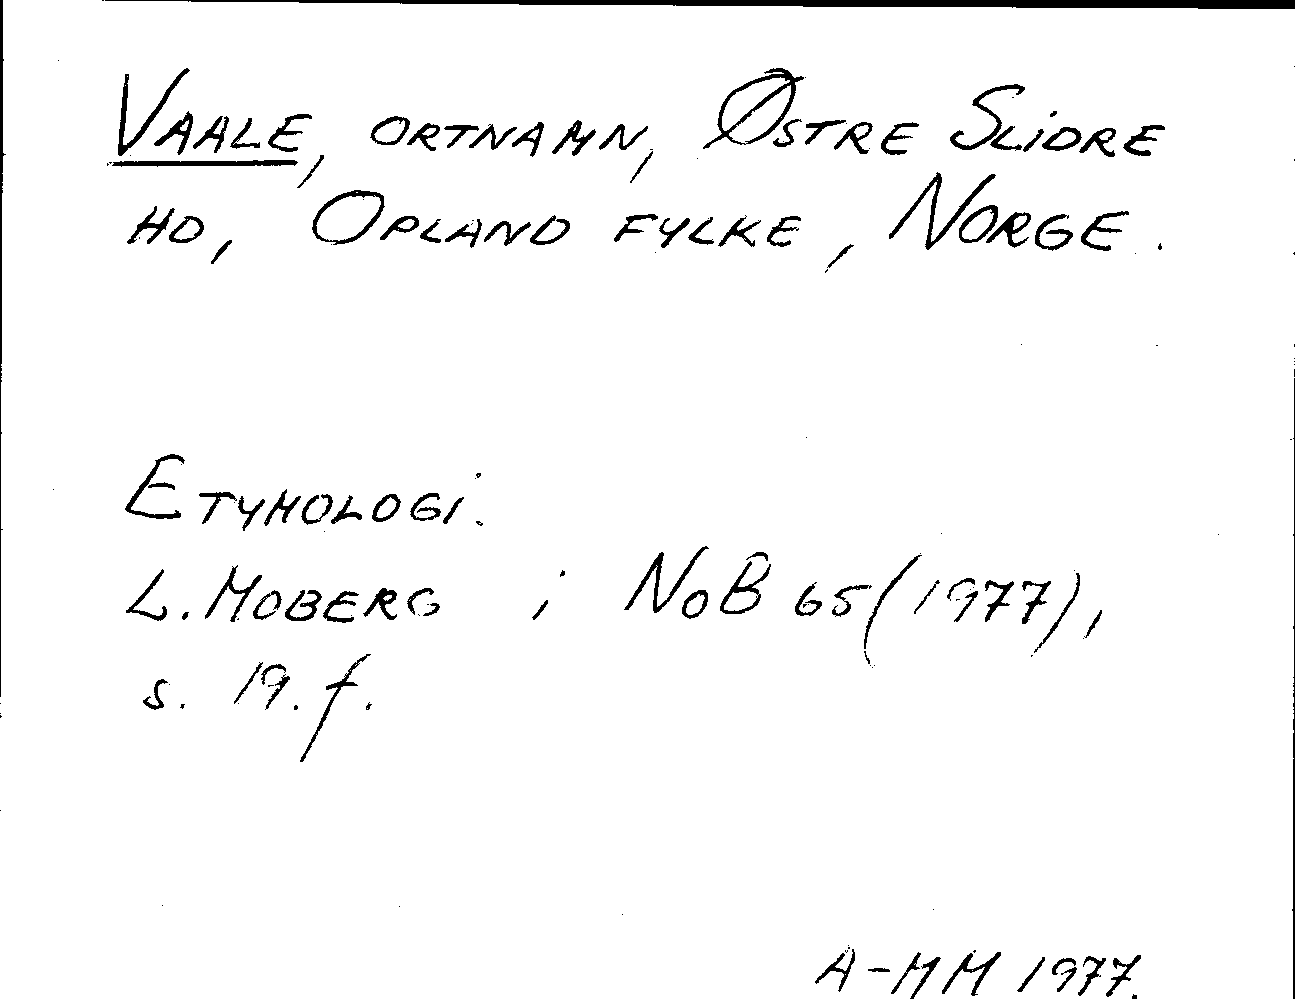 VAALE, ORTNAMN, ØSTRE SLIDRE
HD, OPLAND FYLKE, NORGE.
ETYMOLOGI.
L. MOBERG i NoB 65 (1977),
s. 19. f.
A-MM 1977.